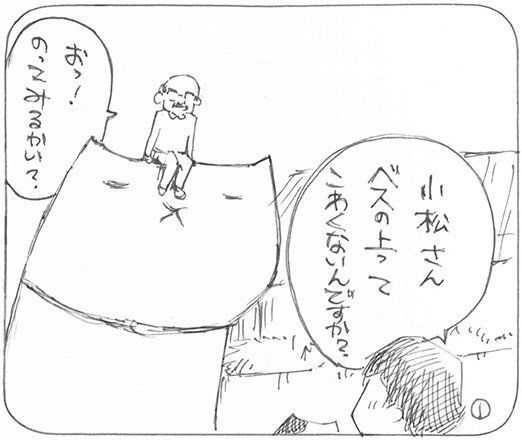 小松さん
ベスの上って
こわくないんですか？
おっ！
のってみるかい？
1